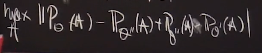 max || P_θ (A) − P_θ'' (A) + P_θ'' (A) − P_θ' (A) |
A